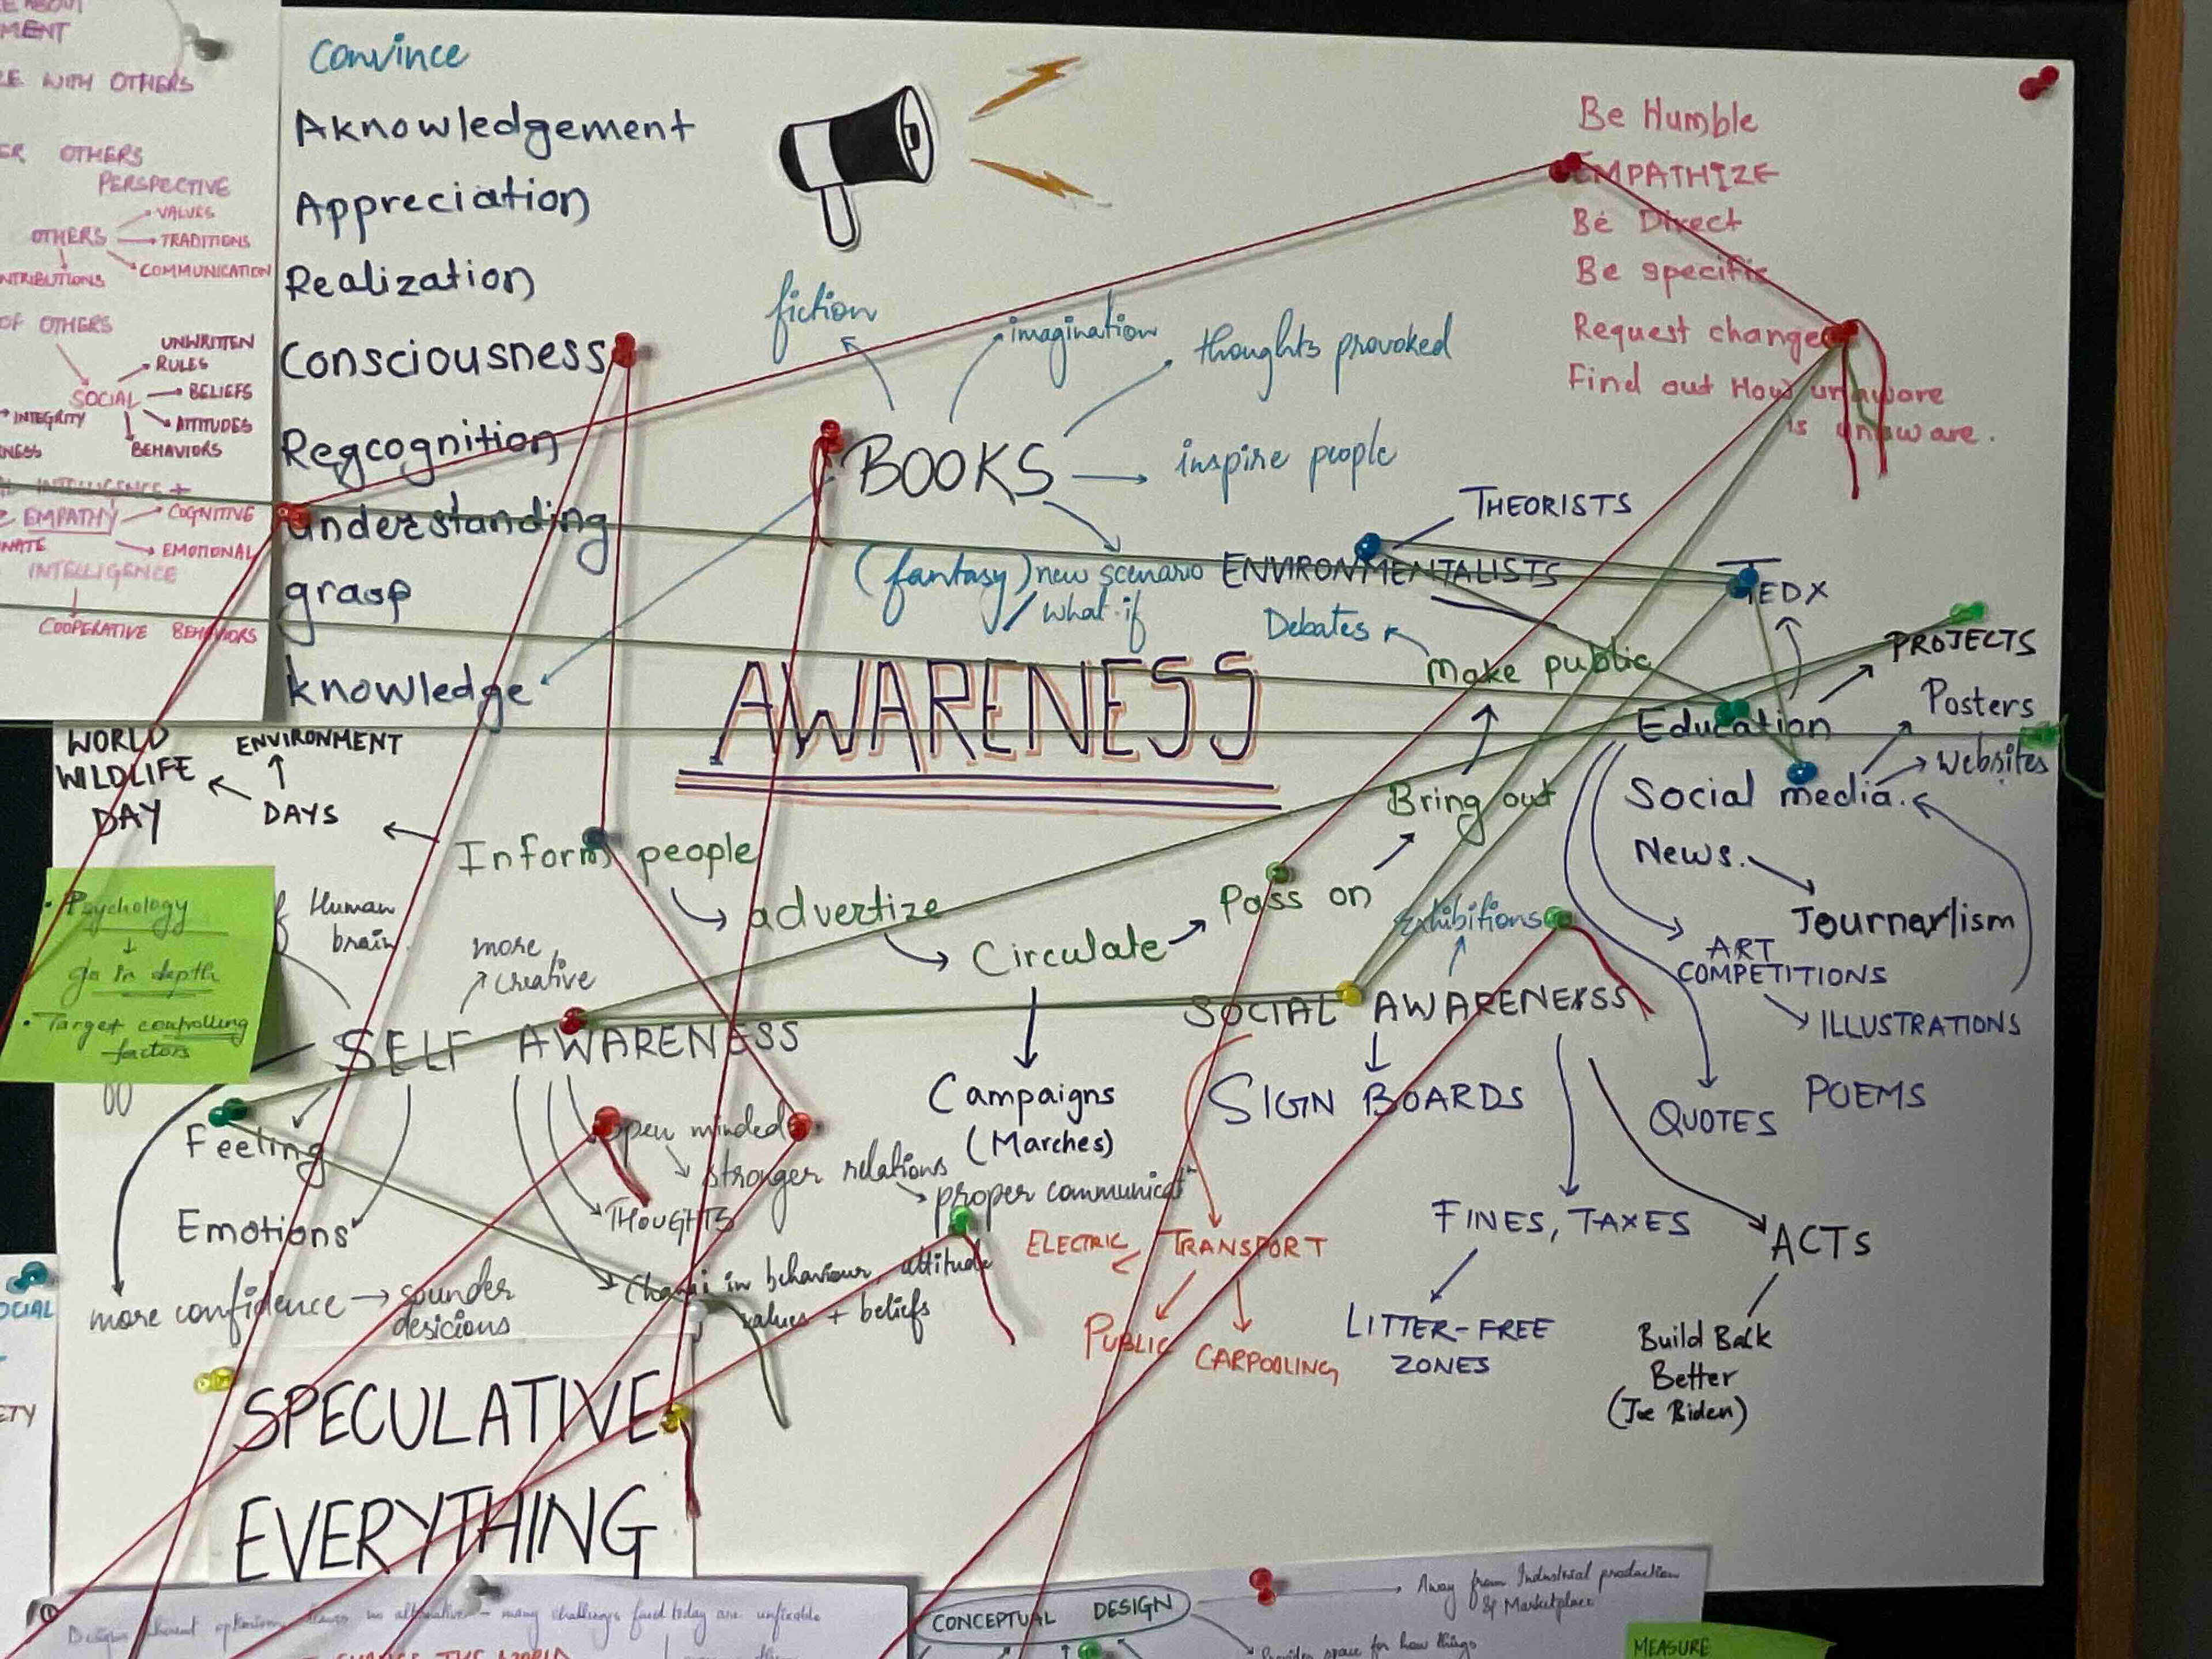 MENT
WITH OTHERS
OTHERS
PERSPECTIVE
VALUES
OTHERS
TRADITIONS
COMMUNICATION
OF OTHERS
UNWRITTEN
RULES
SOCIAL
BELIEFS
INTEGRITY
ATTITUDES
BEHAVIORS
INTELLIGENCE +
EMPATHY
COGNITIVE
EMOTIONAL
INTELLIGENCE
COOPERATIVE BEHAVIORS
Convince
Aknowledgement
Appreciation
Realization
Consciousness
Regcognition
understanding
grasp
knowledge
Be Humble
EMPATHIZE
Be Direct
Be specific
Request change
Find out How unaware
is unaware.
fiction
imagination
thoughts provoked
BOOKS
inspire people
(fantasy) new scenario
/ what if
THEORISTS
ENVIRONMENTALISTS
TEDX
Debates
Make public
PROJECTS
Education
Posters
websites
Social media.
News.
Journarlism
AWARENESS
WORLD
WILDLIFE
DAY
ENVIRONMENT
DAYS
Inform people
advertize
Circulate
Pass on
Bring out
Exhibitions
ART
COMPETITIONS
ILLUSTRATIONS
QUOTES
POEMS
• Psychology
go in depth
• Target controlling
factors
Human
brain.
more
creative
SELF AWARENESS
SOCIAL AWARENESS
Feeling
Emotions
more confidence → sounder
desicions
Open minded
stronger relations
proper communicat
THOUGHTS
in behaviour, attitude
values + beliefs
Campaigns
(Marches)
SIGN BOARDS
ELECTRIC
TRANSPORT
PUBLIC
CARPOOLING
FINES, TAXES
LITTER-FREE
ZONES
ACTs
Build Back
Better
(Joe Biden)
SPECULATIVE
EVERYTHING
many challenges faced today are unfixable
CONCEPTUAL DESIGN
Away from Industrial production
& Marketplace
Provides space for how things
MEASURE